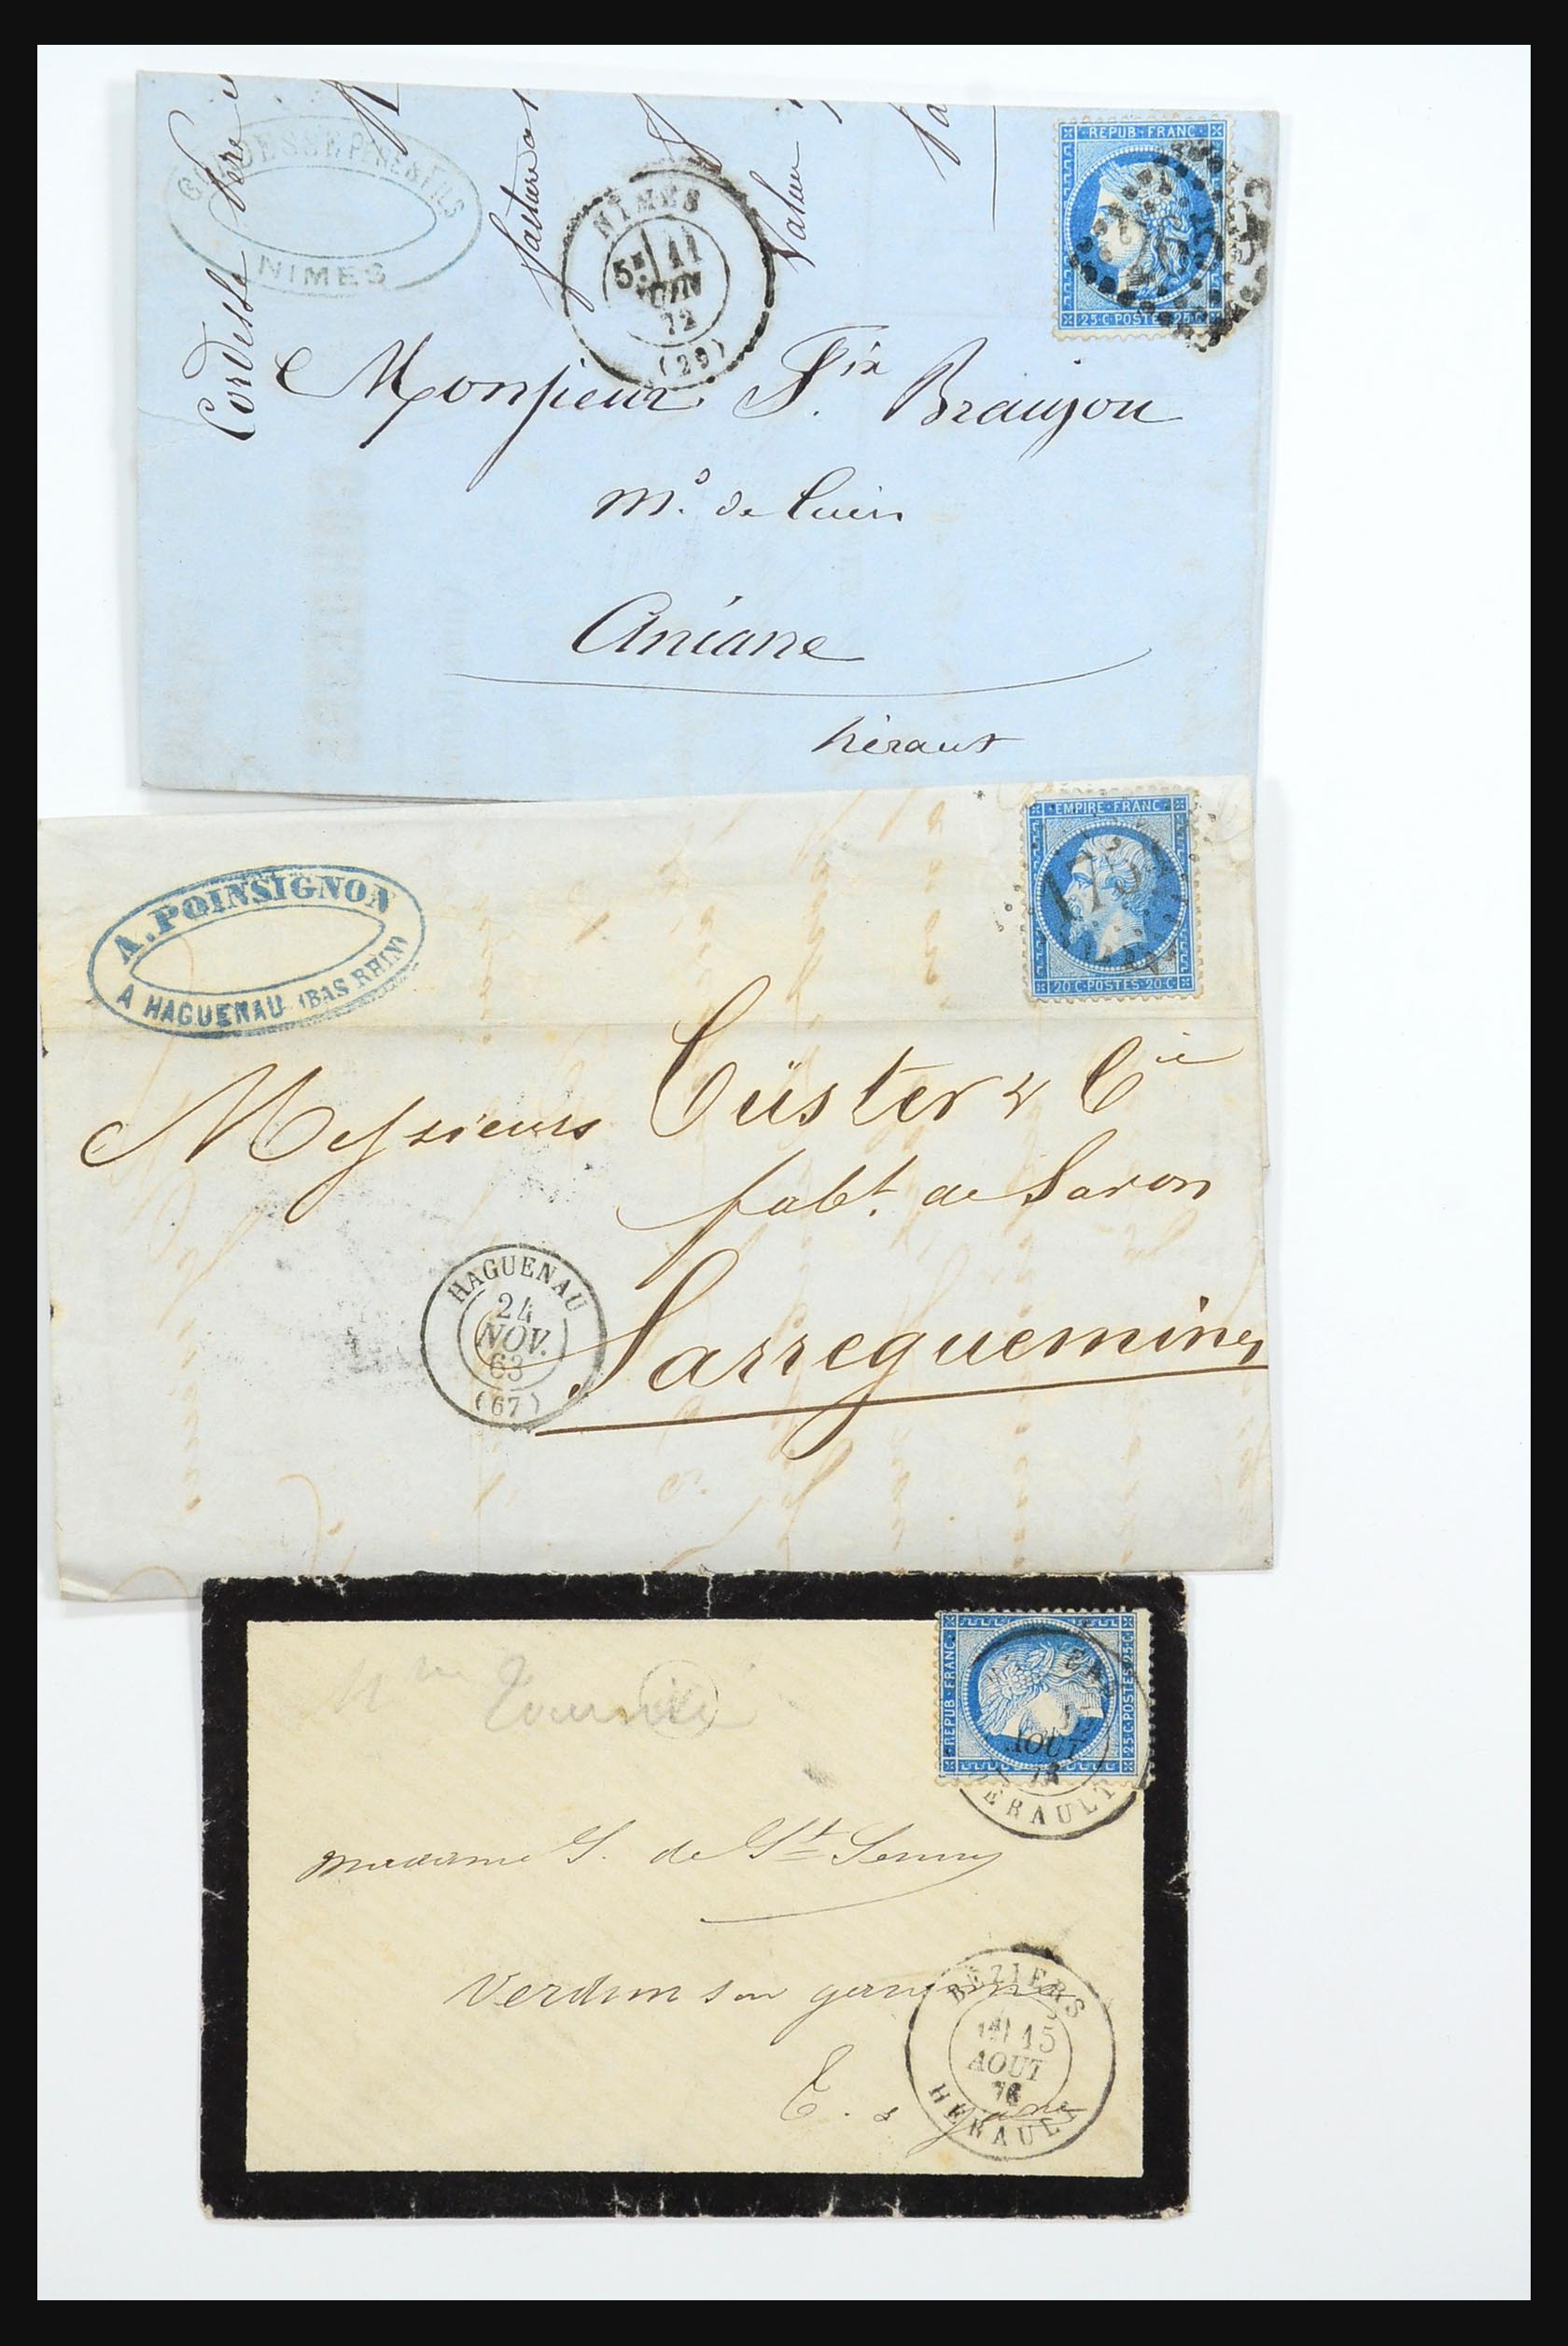 Cordesse Père &
facture
Valeur
PÈRE & FILS
NIMES
NIMES
5E 11
JUIN
72
(29)
REPUB · FRANC
25·C·POSTES·25·C
Monsieur F.ix Braujou
M.d de Cuirs
Aniane
hérault
EMPIRE · FRANC
20·C·POSTES·20·C
A. POINSIGNON
A HAGUENAU (BAS RHIN)
Messieurs Cüster & Cie
fabt. de Savon
Sarreguemines
HAGUENAU
24
NOV.
63
(67)
REPUB · FRANC
25·C·POSTES·25·C
AOUT
HERAULT
Mme
madame S. de St
Verdun sur garonne
BÉZIERS
15
AOUT
76
HERAULT